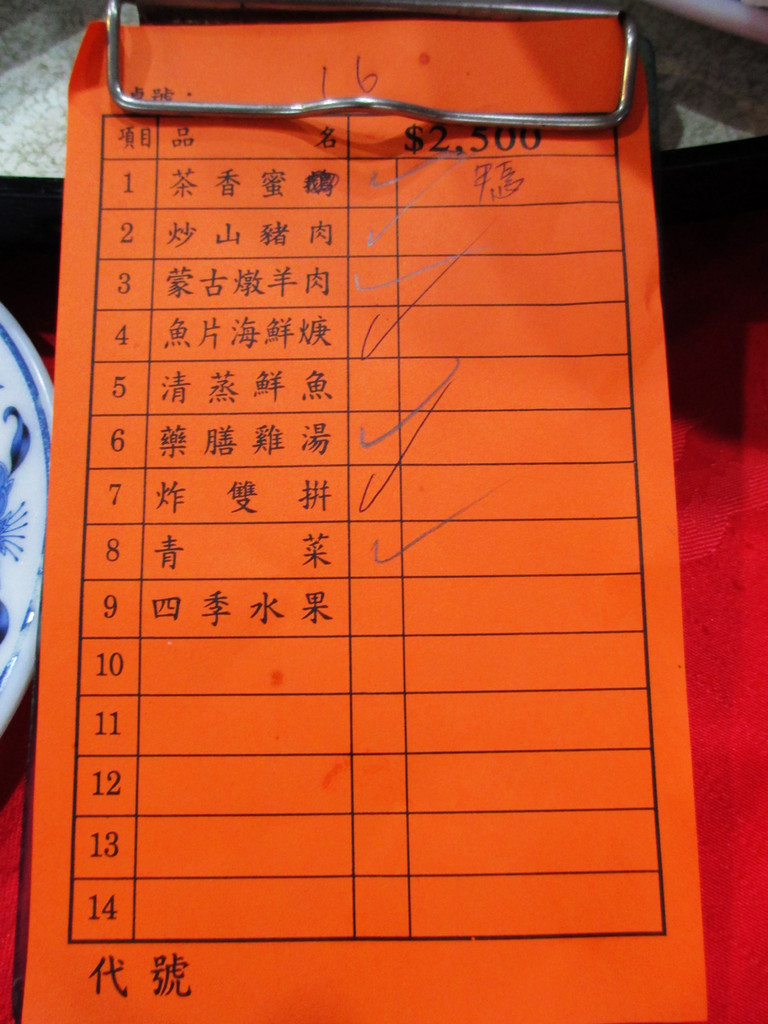 桌號： 16
項目 品名 $2,500
1 茶香蜜 鴨
2 炒山豬肉
3 蒙古燉羊肉
4 魚片海鮮焿
5 清蒸鮮魚
6 藥膳雞湯
7 炸雙拼
8 青菜
9 四季水果
10
11
12
13
14
代號